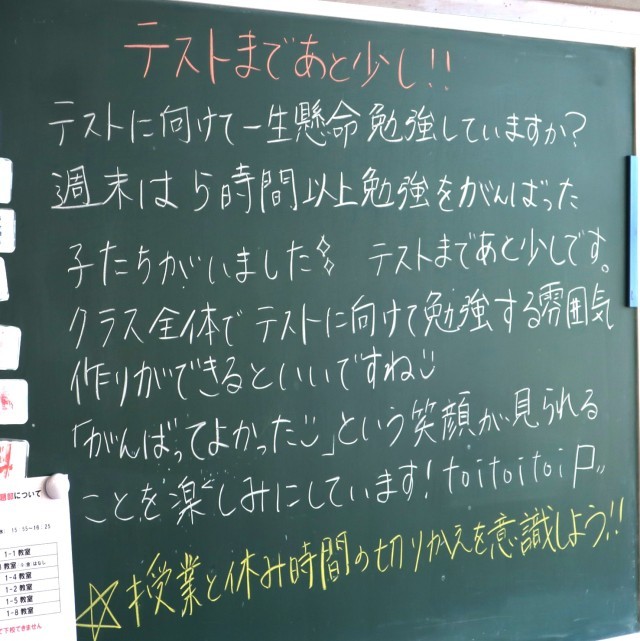 テストまであと少し!!
テストに向けて一生懸命勉強していますか?
週末は5時間以上勉強をがんばった
子たちがいました テストまであと少しです。
クラス全体でテストに向けて勉強する雰囲気
作りができるといいですね
「がんばってよかった」という笑顔が見られる
ことを楽しみにしています! toitoitoi P〃
☆授業と休み時間の切りかえを意識しよう!!
について
15:55~16:25
1-1 教室
教室
1-4 教室
1-2 教室
1-5 教室
1-8 教室
下校できません